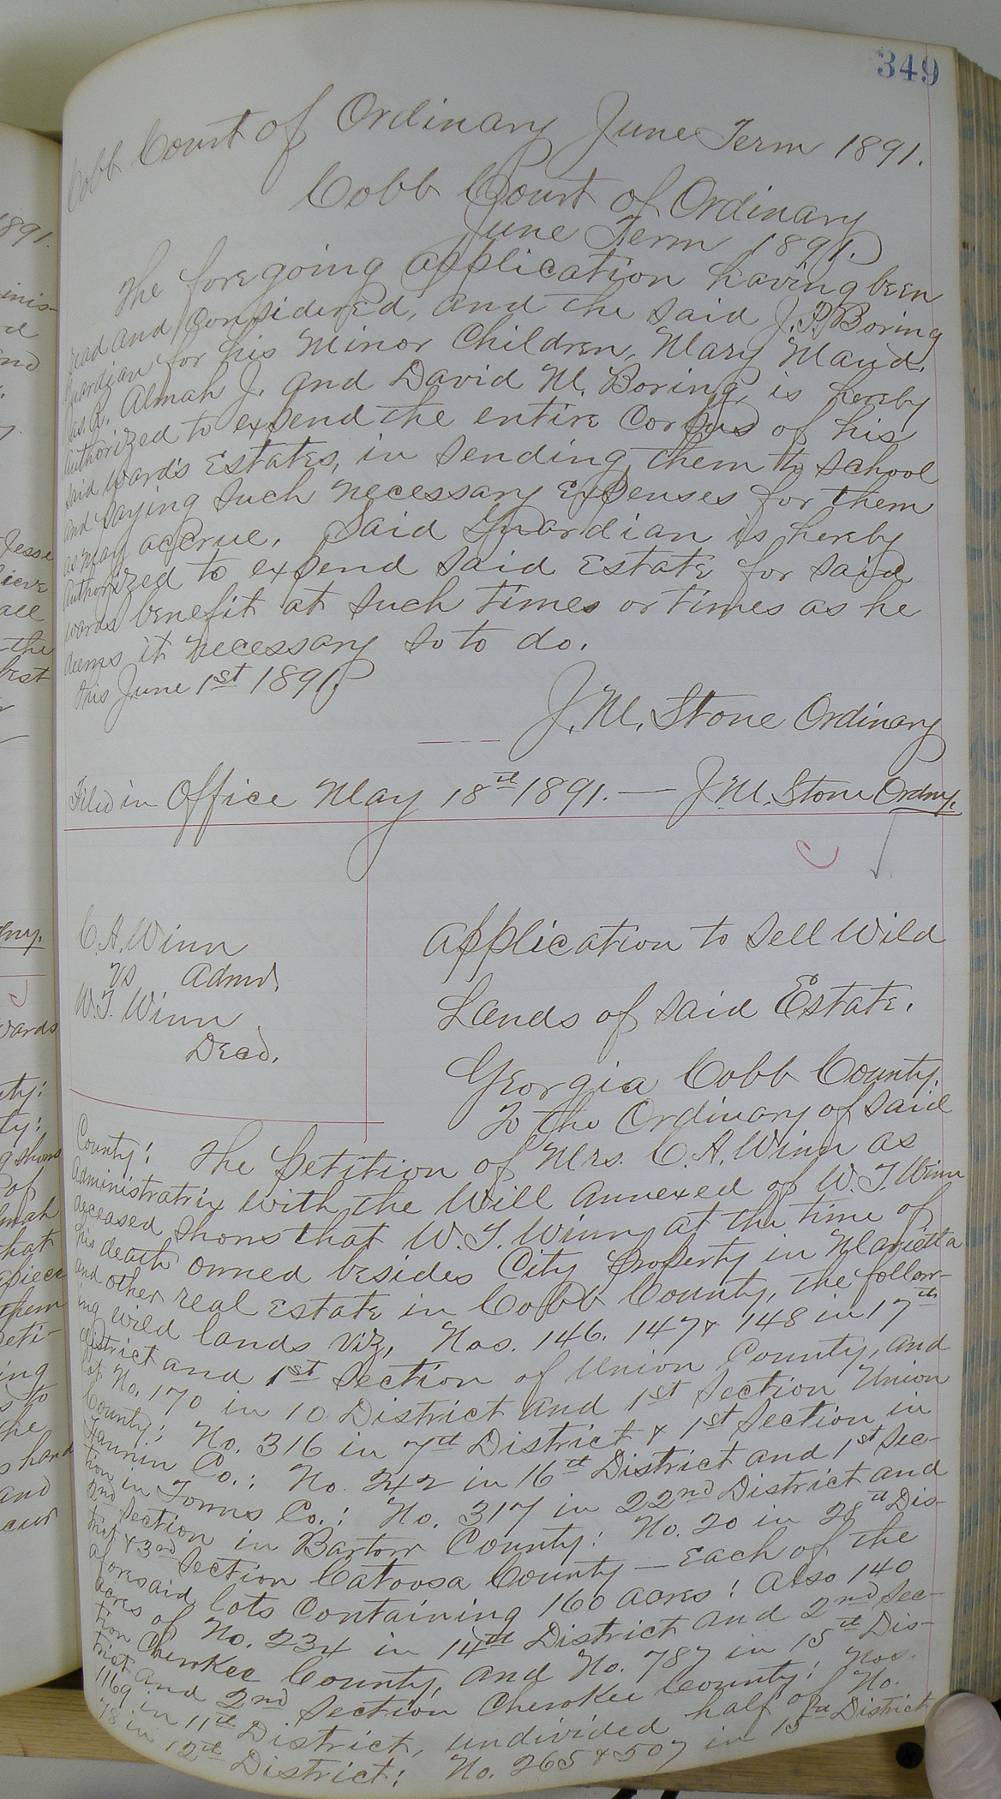 349
Cobb Court of Ordinary June Term 1891.
Cobb Court of Ordinary
June Term 1891.
The foregoing application having been
read and considered, and the said J. P. Boring
Guardian for his minor Children, Mary Maud.
Almah J. and David M. Boring, is hereby
authorized to expend the entire Corpus of his
said ward's Estates, in sending them to school
and paying such necessary expenses for them
as may accrue. Said Guardian is hereby
authorized to expend said Estate for said
wards benefit at such times or times as he
deems it necessary so to do.
this June 1st 1891.
J. M. Stone Ordinary
Filed in Office May 18th 1891. — J. M. Stone Ordny.
C. A. Winn
vs Admr.
W. T. Winn
Decd.
Application to Sell Wild
Lands of said Estate.
Georgia Cobb County.
To the Ordinary of said
County: The Petition of Mrs. C. A. Winn as
Administratrix with the Will annexed of W. T. Winn
deceased, shows that W. T. Winn at the time of
his death owned besides City Property in Marietta
and other real Estate in Cobb County, the follow-
ing wild lands viz, Nos. 146. 147 & 148 in 17th
district and 1st Section of Union County, and
lot No. 170 in 10 District and 1st Section Union
County; No. 316 in 7th District & 1st Section in
Fannin Co.; No. 342 in 16th District and 1st Sec-
tion in Towns Co.; No. 317 in 22nd District and
2nd Section in Bartow County: No. 20 in 28th Dis-
trict & 3rd Section Catoosa County — Each of the
aforesaid lots containing 160 acres; Also 140
acres of No. 234 in 14th District and 2nd Sec-
tion Cherokee County, and No. 787 in 15th Dis-
trict and 2nd Section Cherokee County; Nos.
1169 in 11th District, undivided half of No.
78 in 12th District; No. 265 & 507 in 13th District